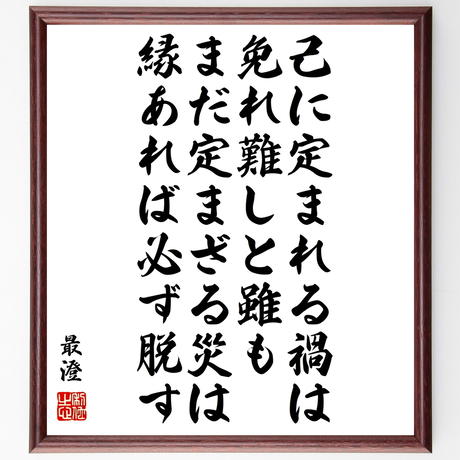 己に定まれる禍は
免れ難しと雖も
まだ定まざる災は
縁あれば必ず脱す
最澄